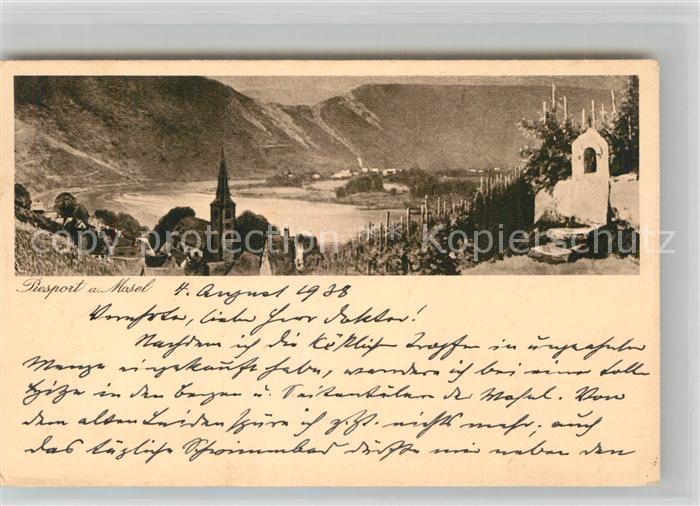 Piesport a. Mosel 4. August 1938
Verehrter, lieber Herr Doktor!
Nachdem ich die köstlich Tropfen in ungeahnter
Menge eingekauft habe, wandere ich bei einer tollen
Hitze in den Bergen u. Seitentälern der Mosel. Von
dem alten Leiden spüre ich z. Zt. nichts mehr; auch
das tägliche Schwimmbad dürfte mir neben den
Copyright oldthing.de Kopierschutz